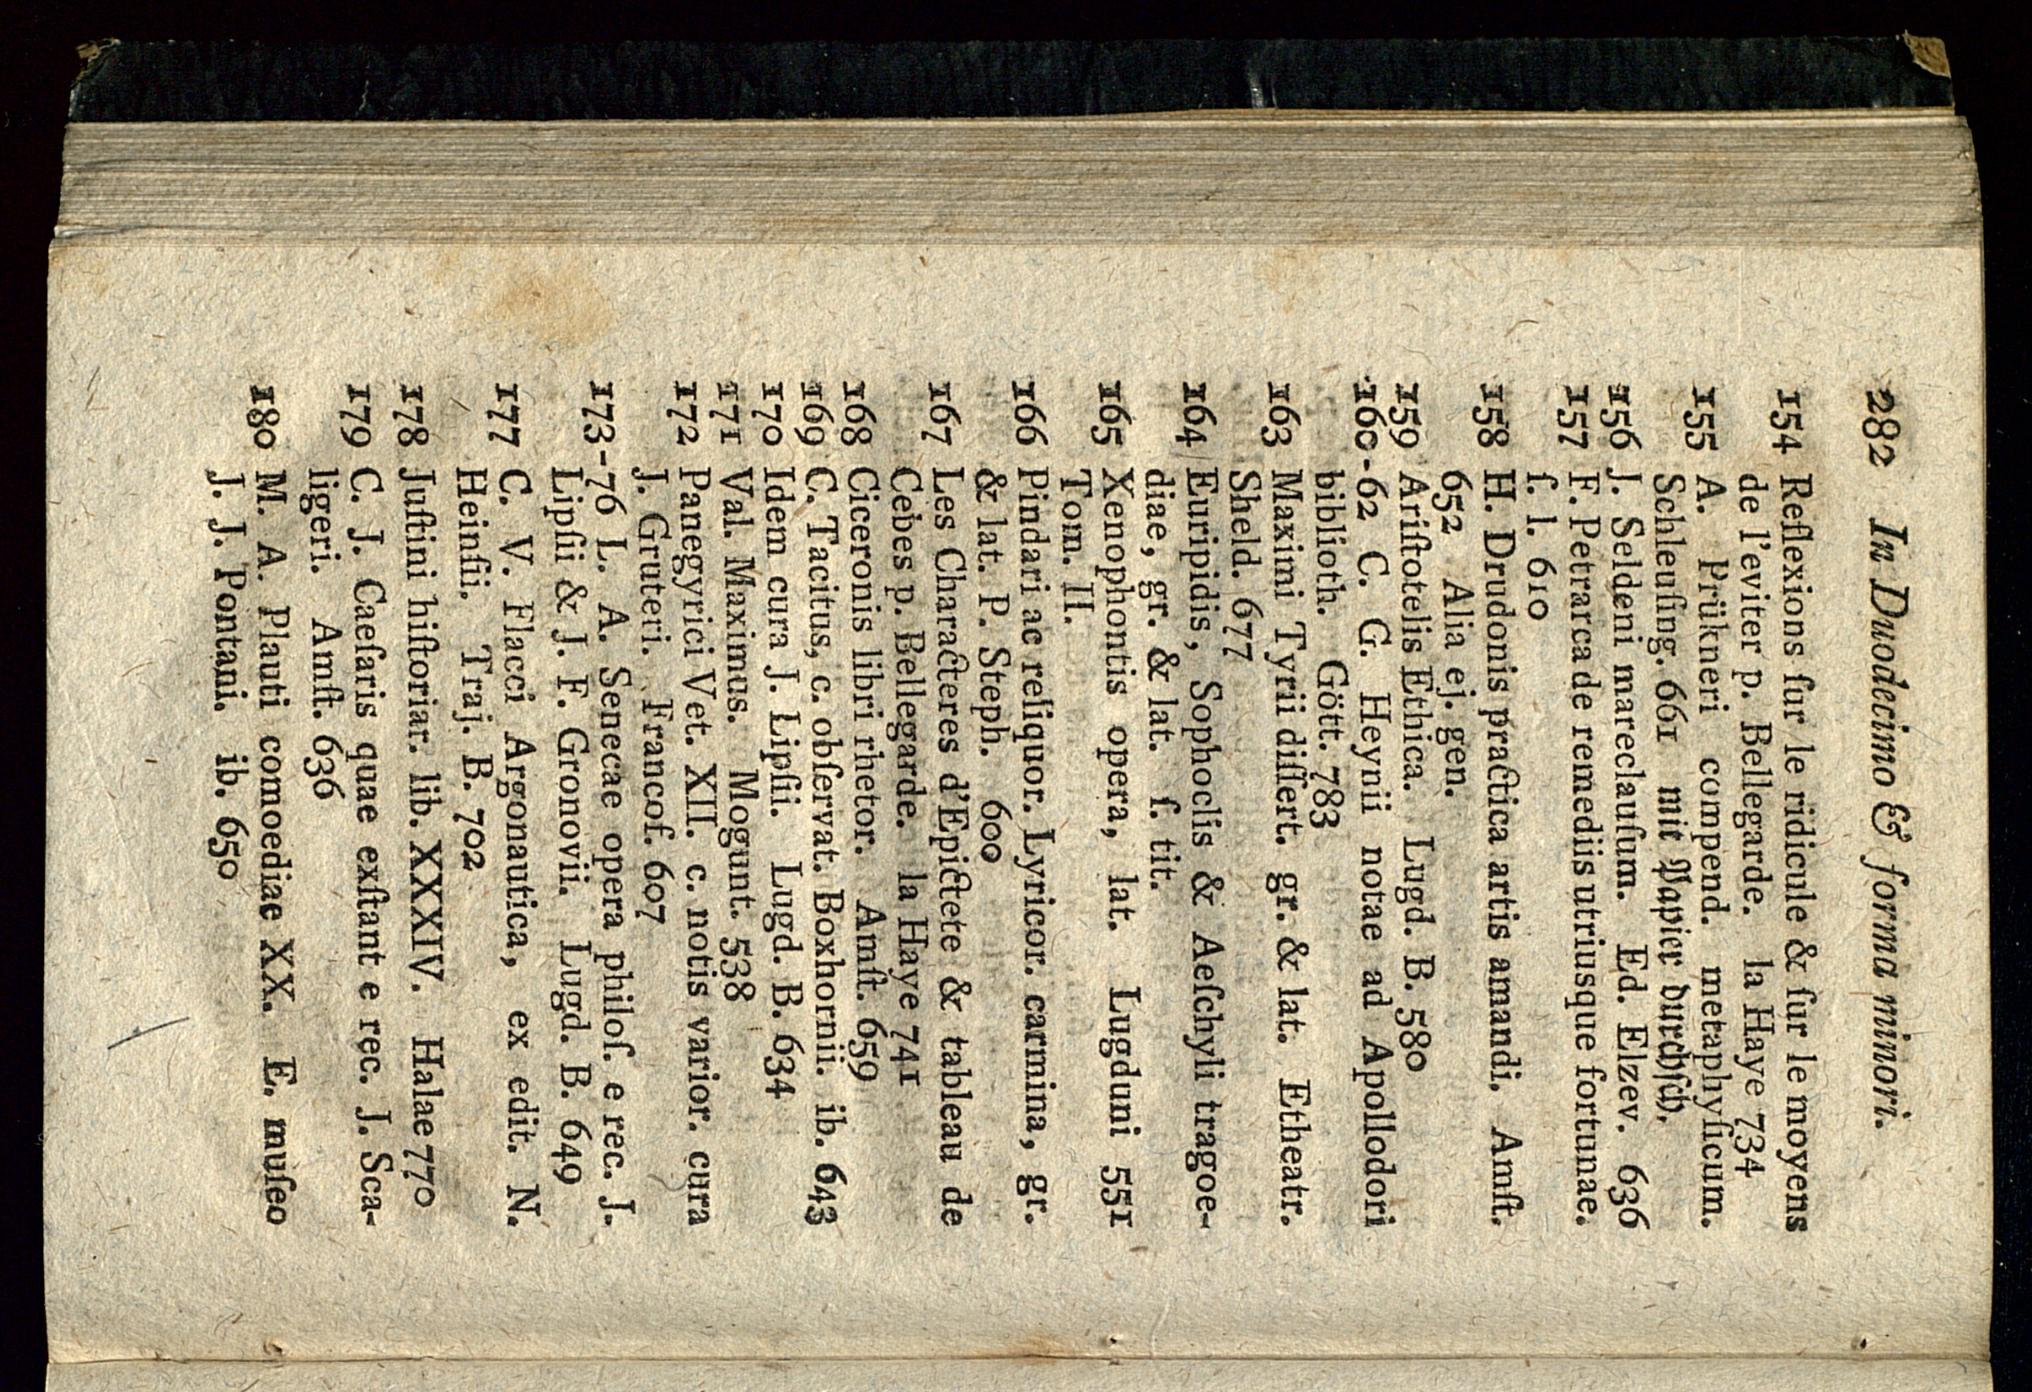 282 In Duodecimo & forma minori.
154 Reflexions ſur le ridicule & ſur le moyens
de l'eviter p. Bellegarde. la Haye 734
155 A. Prükneri compend. metaphyſicum.
Schleuſing. 661 mit Papier durchſch.
156 J. Seldeni mareclauſum. Ed. Elzev. 636
157 F. Petrarca de remediis utriusque fortunae.
ſ. l. 610
158 H. Drudonis practica artis amandi. Amſt.
652 Alia ej. gen.
159 Ariſtotelis Ethica. Lugd. B. 580
160-62 C. G. Heynii notae ad Apollodori
biblioth. Gött. 783
163 Maximi Tyrii diſſert. gr. & lat. Etheatr.
Sheld. 677
164 Euripidis, Sophoclis & Aeſchyli tragoe-
diae, gr. & lat. ſ. tit.
165 Xenophontis opera, lat. Lugduni 551
Tom. II.
166 Pindari ac reliquor. Lyricor. carmina, gr.
& lat. P. Steph. 600
167 Les Characteres d'Epictete & tableau de
Cebes p. Bellegarde. la Haye 741
168 Ciceronis libri rhetor. Amſt. 659
169 C. Tacitus, c. obſervat. Boxhornii. ib. 643
170 Idem cura J. Lipſii. Lugd. B. 634
171 Val. Maximus. Mogunt. 538
172 Panegyrici Vet. XII. c. notis varior. cura
J. Gruteri. Francof. 607
173-76 L. A. Senecae opera philoſ. e rec. J.
Lipſii & J. F. Gronovii. Lugd. B. 649
177 C. V. Flacci Argonautica, ex edit. N.
Heinſii. Traj. B. 702
178 Juſtini hiſtoriar. lib. XXXIV. Halae 770
179 C. J. Caeſaris quae exſtant e rec. J. Sca-
ligeri. Amſt. 636
180 M. A. Plauti comoediae XX. E. muſeo
J. J. Pontani. ib. 650